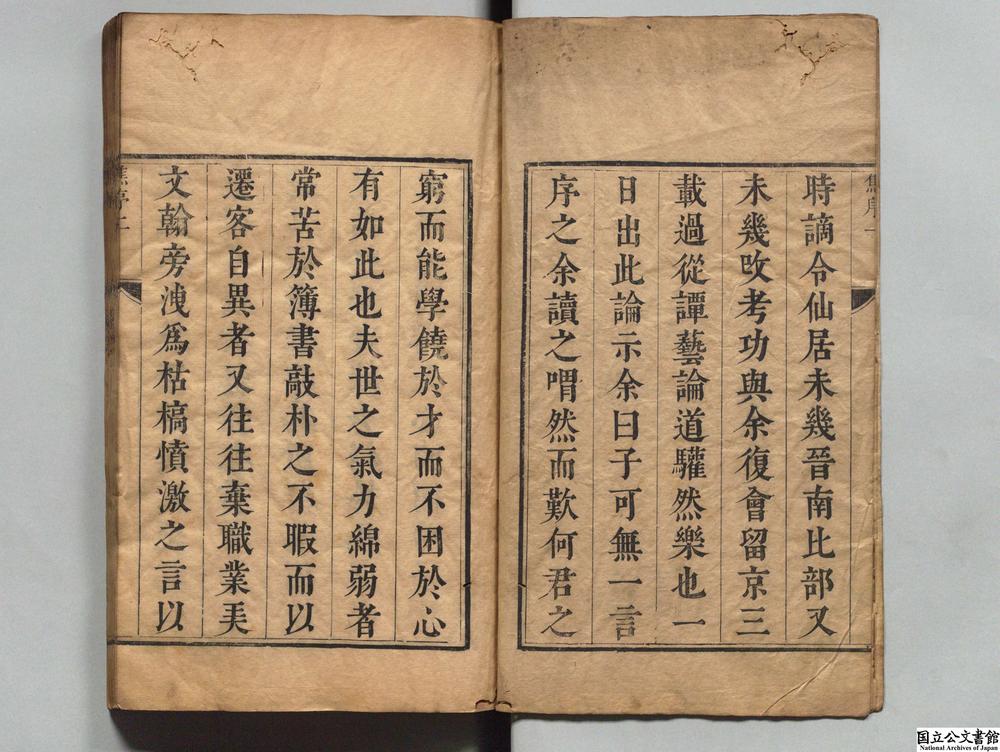 時謫令仙居未幾晉南比部又
未幾改考功與余復會留京三
載過從譚藝論道驩然樂也一
日出此論示余曰子可無一言
序之余讀之喟然而歎何君之
焦序一
窮而能學饒於才而不困於心
有如此也夫世之氣力綿弱者
常苦於簿書敲朴之不暇而以
遷客自異者又往往棄職業美
文翰旁洩爲枯槁憤激之言以
焦序二
国立公文書館
National Archives of Japan